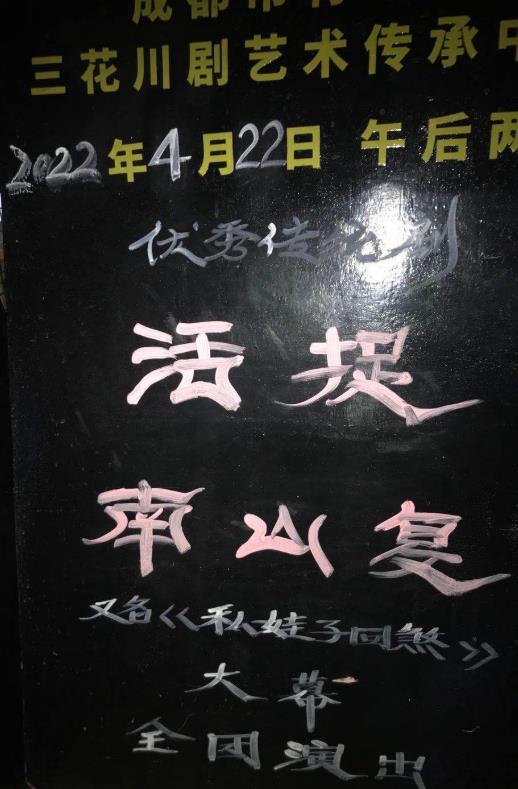 成都市
三花川剧艺术传承中
2022年4月22日 午后两
优秀传统剧
活捉
南山复
又名《私娃子回煞》
大幕
全团演出